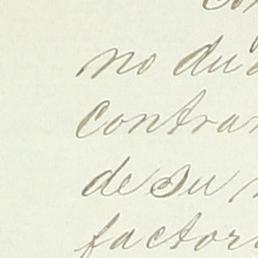 no du
contra
de su
factor